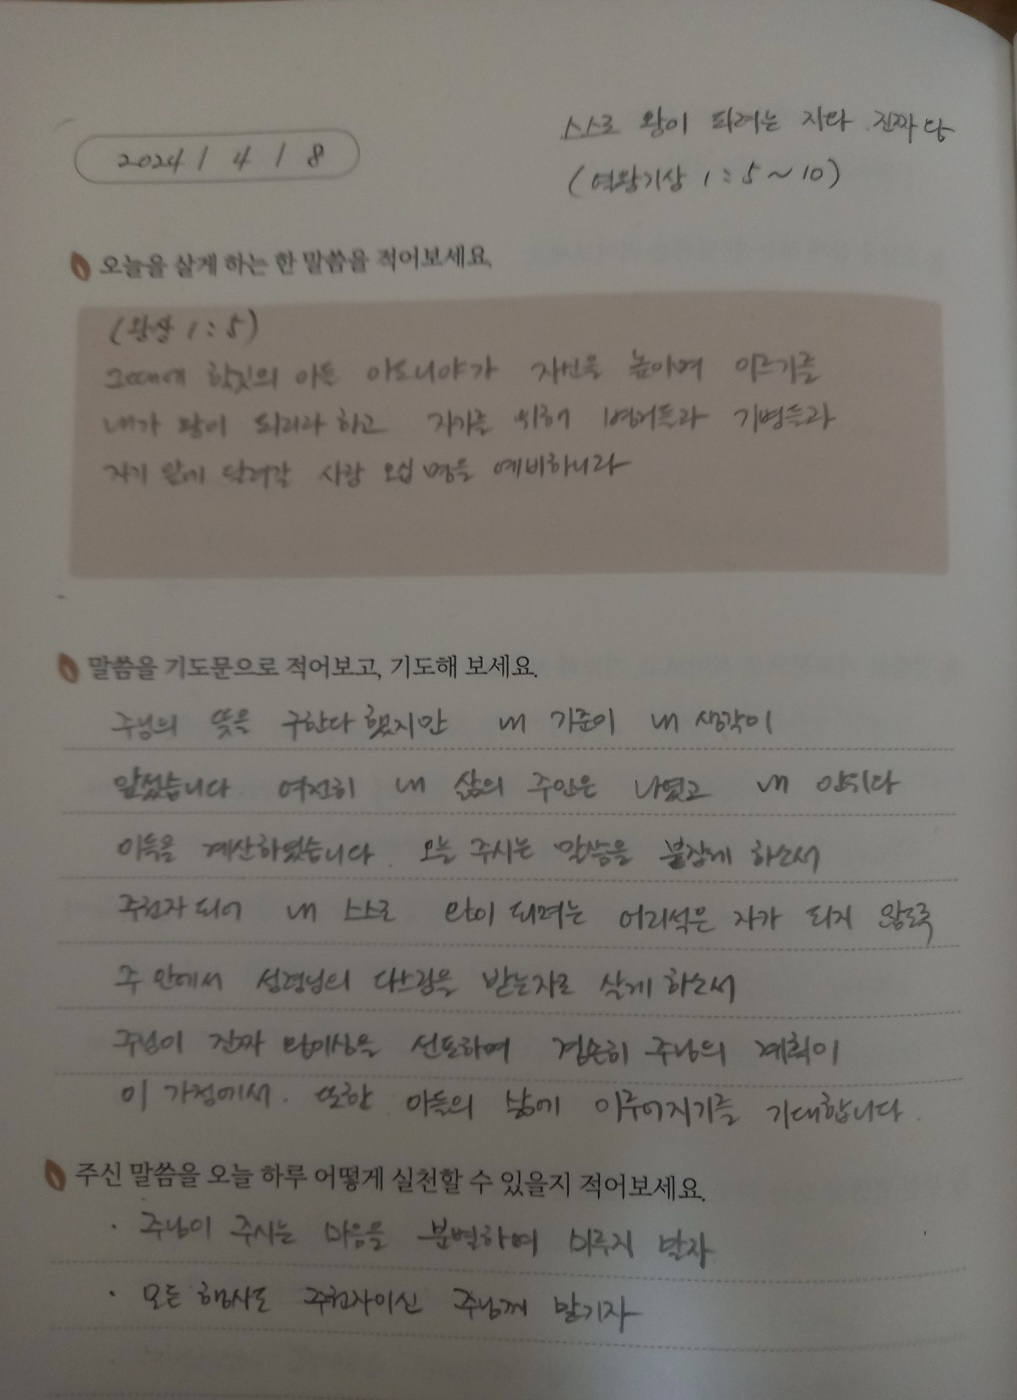 2024 / 4 / 8
스스로 왕이 되려는 자와 진짜 왕
(열왕기상 1 : 5 ~ 10)
오늘을 살게 하는 한 말씀을 적어보세요.
(왕상 1 : 5)
그때에 학깃의 아들 아도니야가 자신을 높이며 이르기를
내가 왕이 되리라 하고 자기를 위해 병거들과 기병들과
자기 앞에 달려갈 사람 오십 명을 예비하니라
말씀을 기도문으로 적어보고, 기도해 보세요.
주님의 뜻을 구한다 했지만 내 기준이 내 생각이
앞섰습니다 여전히 내 삶의 주인은 나였고 내 안위와
이득을 계산하였습니다. 오늘 주시는 말씀을 붙잡게 하소서
주권자 되어 내 스스로 왕이 되려는 어리석은 자가 되지 않도록
주 안에서 성령님의 다스림을 받는자로 살게 하소서
주님이 진짜 왕이심을 선포하며 겸손히 주님의 계획이
이 가정에서. 또한 아들의 삶에 이루어지기를 기대합니다.
주신 말씀을 오늘 하루 어떻게 실천할 수 있을지 적어보세요.
· 주님이 주시는 마음을 분별하며 미루지 말자
· 모든 행사도 주권자이신 주님께 맡기자